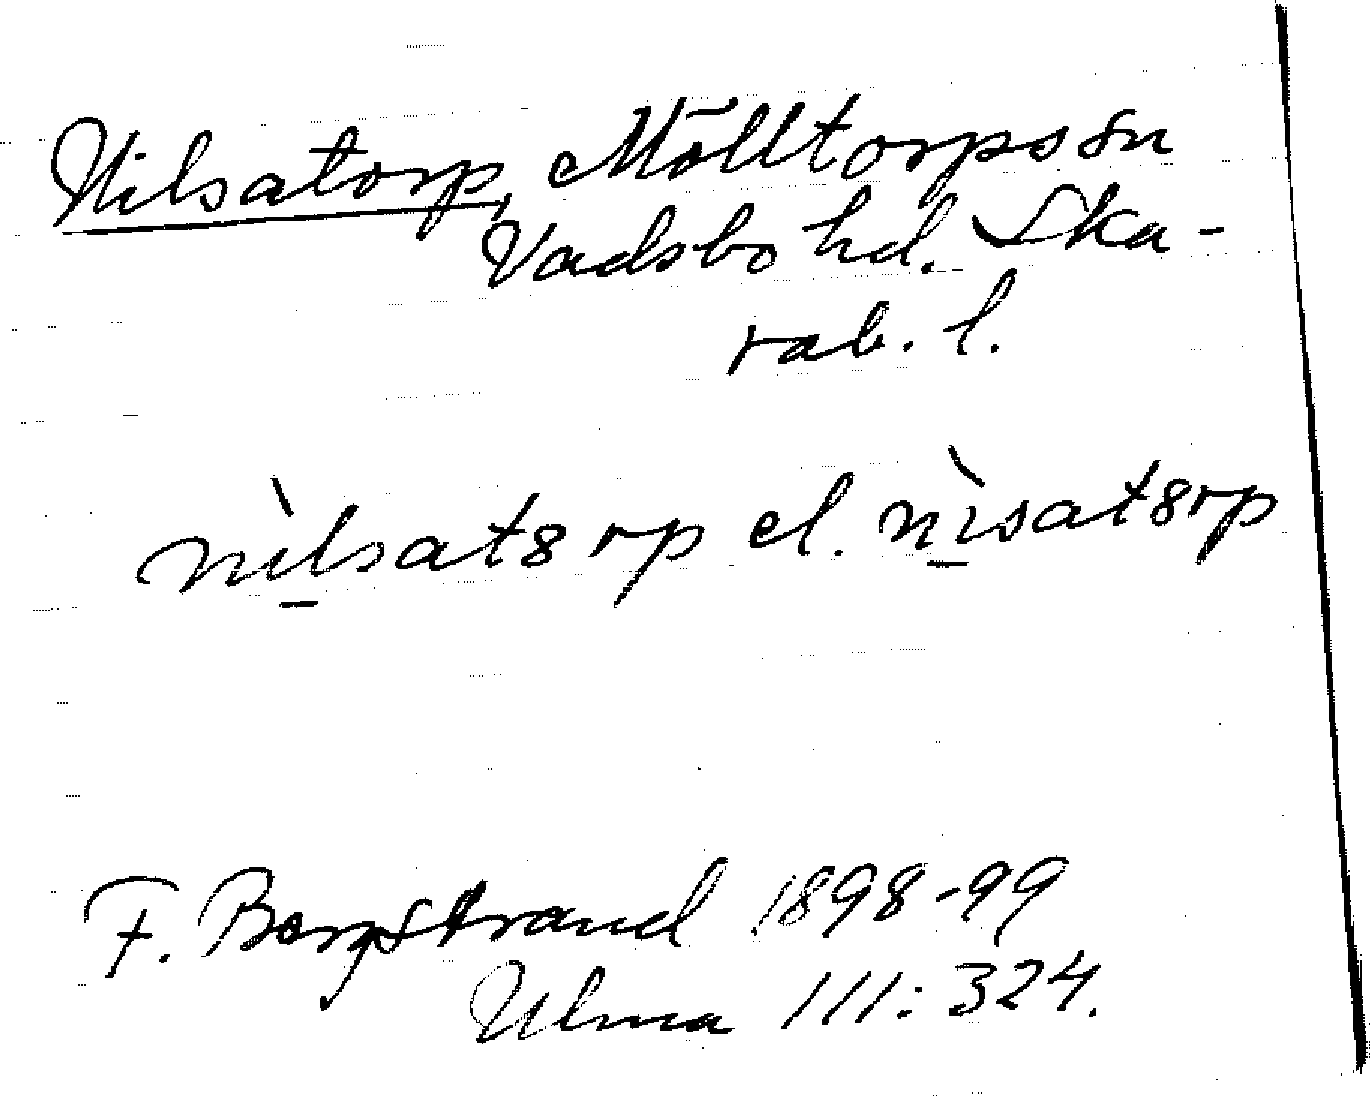 Nilsatorp, Mölltorps sn
Vadsbo hd. Ska-
rab. l.
nìlsat8rp el. nìsat8rp
F. Bergstrand 1898-99
Ulma 111:324.